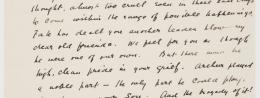 thought, almost too cruel even in these last days
to come within the range of possible happenings.
Fate has dealt you another leader blow my
dear old friends. We feel for you as though
he were one of our own. But there must be
high, clean pride in your grief. Archer played
a noble part — the only part he could play,
your Son. And the tragedy of it!